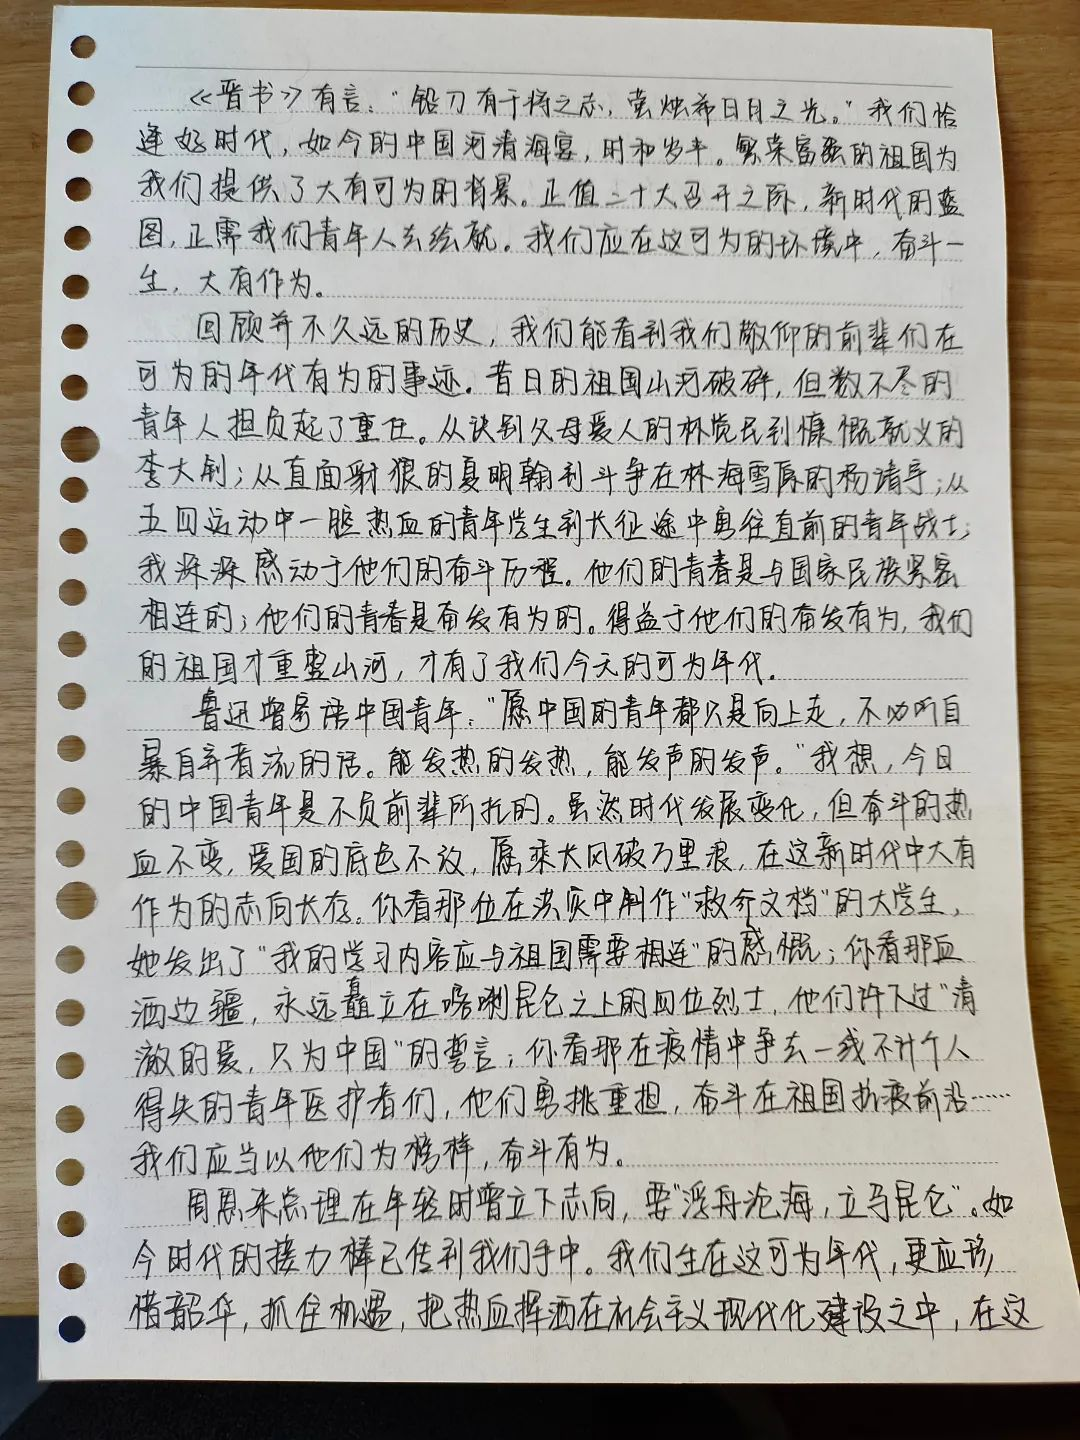 《晋书》有言：“铅刀有干将之志，萤烛希日月之光。”我们恰
逢好时代，如今的中国河清海宴，时和岁丰。繁荣富强的祖国为
我们提供了大有可为的背景。正值二十大召开之际，新时代的蓝
图，正需我们青年人去绘就。我们应在这可为的环境中，奋斗一
生，大有作为。
回顾并不久远的历史，我们能看到我们敬仰的前辈们在
可为的年代有为的事迹。昔日的祖国山河破碎，但数不尽的
青年人担负起了重任。从诀别父母爱人的林觉民到慷慨就义的
李大钊；从直面豺狼的夏明翰到斗争在林海雪原的杨靖宇；从
五四运动中一腔热血的青年学生到长征途中勇往直前的青年战士；
我深深感动于他们的奋斗历程。他们的青春是与国家民族紧密
相连的；他们的青春是奋发有为的。得益于他们的奋发有为，我们
的祖国才重整山河，才有了我们今天的可为年代。
鲁迅曾寄语中国青年：“愿中国的青年都只是向上走，不必听自
暴自弃者流的话。能发热的发热，能发声的发声。”我想，今日
的中国青年是不负前辈所托的。虽然时代发展变化，但奋斗的热
血不变，爱国的底色不改，愿乘长风破万里浪，在这新时代中大有
作为的志向长存。你看那位在洪灾中制作“救命文档”的大学生，
她发出了“我的学习内容应与祖国需要相连”的感慨；你看那血
洒边疆，永远矗立在喀喇昆仑之上的四位烈士，他们许下过“清
澈的爱，只为中国”的誓言；你看那在疫情中争去一线不计个人
得失的青年医护者们，他们勇挑重担，奋斗在祖国抗疫前沿……
我们应当以他们为榜样，奋斗有为。
周恩来总理在年轻时曾立下志向，要“浮舟沧海，立马昆仑”。如
今时代的接力棒已传到我们手中。我们生在这可为年代，更应珍
惜韶华，抓住机遇，把热血挥洒在社会主义现代化建设之中，在这